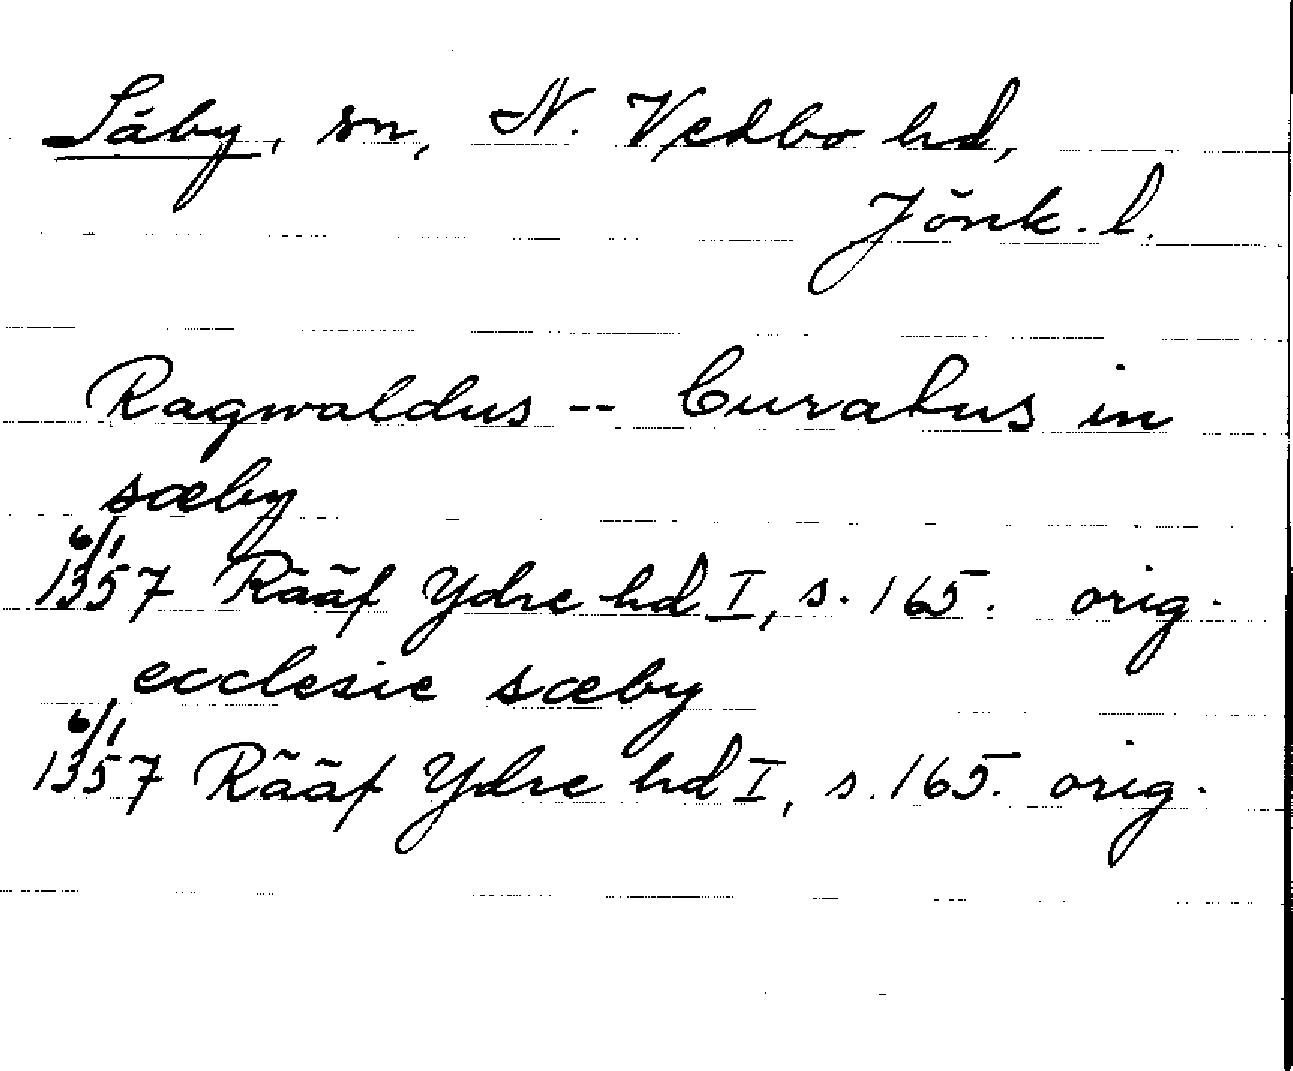 Säby, sn, N. Vedbo hd,
Jönk. l.
Ragwaldus -- Curatus in
sæby
6/1 1357 Rääf Ydre hd I, s. 165. orig.
ecclesie sæby
6/1 1357 Rääf Ydre hd I, s. 165. orig.